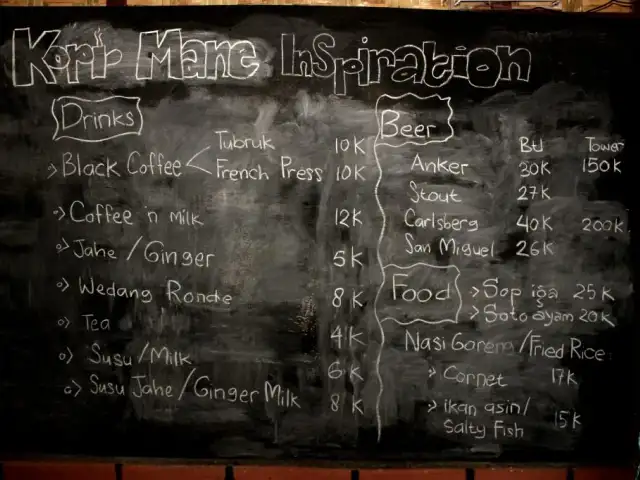 Kopi Mane Inspiration
Drinks
Black Coffee < Tubruk 10K
French Press 10K
Coffee 'n Milk 12K
Jahe / Ginger 5K
Wedang Ronde 8K
Tea 4K
Susu / Milk 6K
Susu Jahe / Ginger Milk 8K
Beer
Btl Tower
Anker 30K 150K
Stout 27K
Carlsberg 40K 200K
San Miguel 26K
Food
> Sop iga 25K
> Soto ayam 20K
Nasi Goreng / Fried Rice :
> Cornet 17K
> ikan asin / 15K
Salty Fish